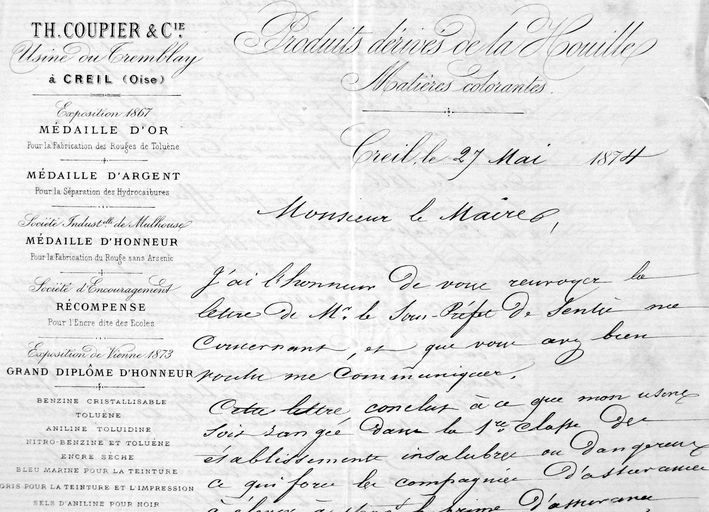 TH. COUPIER & CIE.
Usine du Tremblay
à CREIL (Oise)
Exposition 1867
MÉDAILLE D'OR
Pour la Fabrication des Rouges de Toluène
MÉDAILLE D'ARGENT
Pour la Séparation des Hydrocarbures
Société Indust.elle de Mulhouse
MÉDAILLE D'HONNEUR
Pour la Fabrication du Rouge sans Arsenic
Société d'Encouragement
RÉCOMPENSE
Pour l'Encre dite des Ecoles
Exposition de Vienne 1873
GRAND DIPLÔME D'HONNEUR
BENZINE CRISTALLISABLE
TOLUÈNE
ANILINE TOLUIDINE
NITRO-BENZINE ET TOLUÈNE
ENCRE SÈCHE
BLEU MARINE POUR LA TEINTURE
GRIS POUR LA TEINTURE ET L'IMPRESSION
SELS D'ANILINE POUR NOIR
Produits dérivés de la Houille
Matières colorantes.
Creil, le 27 Mai 1874
Monsieur le Maire,
J'ai l'honneur de vous renvoyer la
lettre de Mr. le Sous-Préfet de Senlis me
concernant, et que vous avez bien
voulu me communiquer.
Cette lettre conclut à ce que mon usine
soit rangée dans la 1re classe des
établissements insalubres ou dangereux
ce qui force les compagnies d'assurances
à élever prime d'assurance